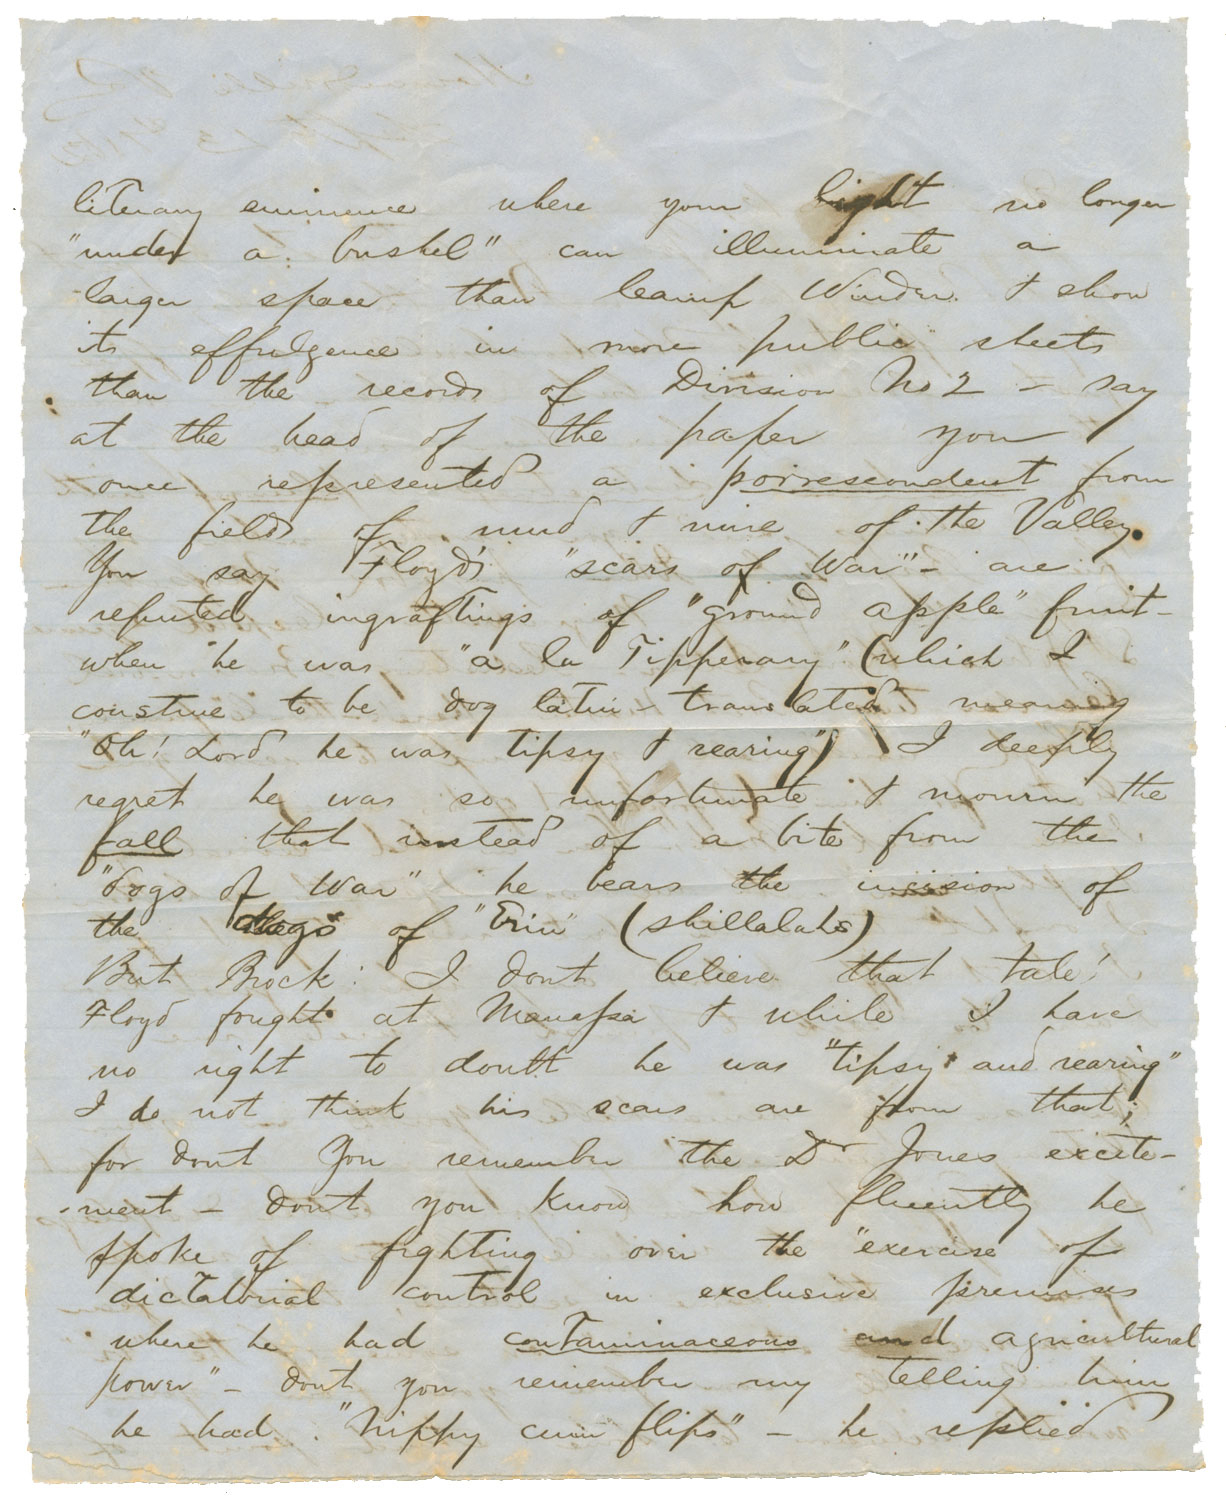 literary eminence where your light no longer
"under a bushel" can illuminate a
larger space than Camp Winder & show
its effulgence in more "public" sheets
than the records of Division No 2 – say
at the head of the paper you
once represented a porrescondent from
the fields of mud & mire of the Valley.
You say Floyd's "scars of War" – are
reputed ingraftings of "ground apple" fruit –
when he was "a la Tipperary" (which I
construe to be dog latin – translated meaning
"Oh! Lord he was tipsy & rearing") I deeply
regret he was so unfortunate & mourn the
fall that instead of a bite from the
"dogs of War" he bears the incision of
the of "Erin" (shillalahs)
But Brock! I dont believe that tale!
Floyd fought at Manassa & while I have
no right to doubt he was "tipsy and rearing"
I do not think his scars are from that;
for dont You remember the Dr Jones excite-
-ment – dont you know how fluently he
spoke of fighting over the "exercise of
dictatorial control in exclusive premises
where he had contaminaceous and agricultural
power" – dont you remember my telling him
he had "hippy cum flips" – he replied